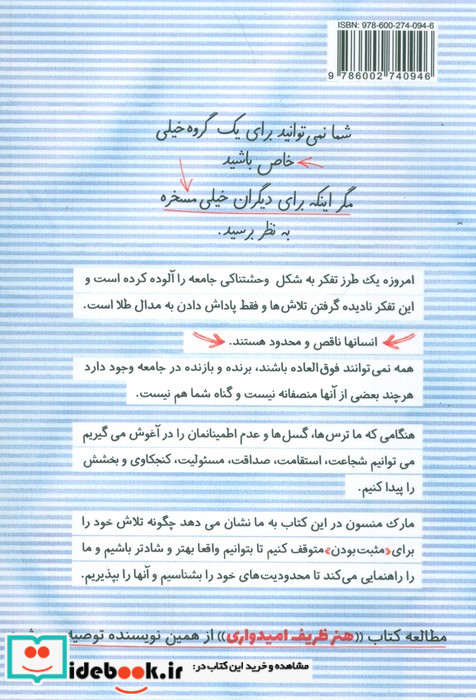 ISBN: 978-600-274-094-6
9 786002 740946
شما نمی‌توانید برای یک گروه خیلی
خاص باشید
مگر اینکه برای دیگران خیلی مسخره
به نظر برسید.
امروزه یک طرز تفکر به شکل وحشتناکی جامعه را آلوده کرده است و
این تفکر نادیده گرفتن تلاش‌ها و فقط پاداش دادن به مدال طلا است.
انسانها ناقص و محدود هستند.
همه نمی‌توانند فوق‌العاده باشند، برنده و بازنده در جامعه وجود دارد
هرچند بعضی از آنها منصفانه نیست و گناه شما هم نیست.
هنگامی که ما ترس‌ها، گسل‌ها و عدم اطمینانمان را در آغوش می گیریم
می توانیم شجاعت، استقامت، صداقت، مسئولیت، کنجکاوی و بخشش
را پیدا کنیم.
مارک منسون در این کتاب به ما نشان می دهد چگونه تلاش خود را
برای «مثبت‌بودن» متوقف کنیم تا بتوانیم واقعا بهتر و شادتر باشیم و ما
را راهنمایی می‌کند تا محدودیت‌های خود را بشناسیم و آنها را بپذیریم.
مطالعه کتاب ((هنر ظریف امیدواری)) از همین نویسنده
مشاهده و خرید این کتاب در:
idebook.ir